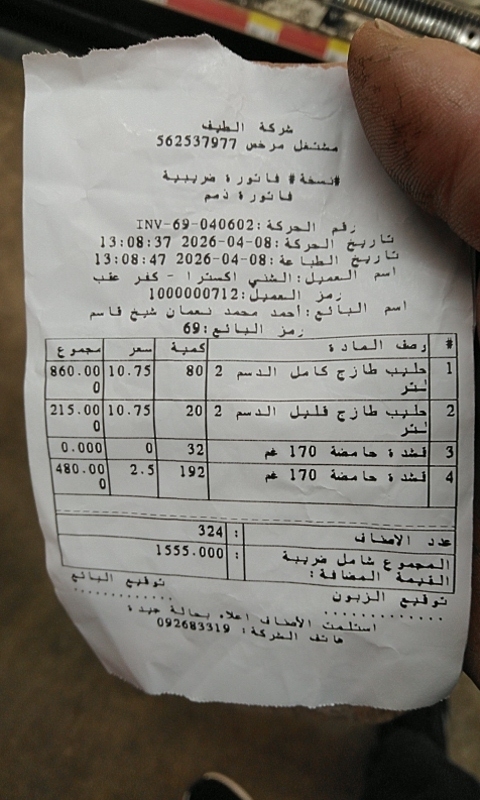 شركة الطيف
مشتغل مرخص 562537977
#نسخة# فاتورة ضريبية
فاتورة ذمم
رقم الحركة: INV-69-040602
تاريخ الحركة: 2026-04-08 13:08:37
تاريخ الطباعة: 2026-04-08 13:08:47
اسم العميل: الشني اكسترا - كفر عقب
رمز العميل: 1000000712
اسم البائع: احمد محمد نعمان شيخ قاسم
رمز البائع: 69
# وصف المادة كمية سعر مجموع
1 حليب طازج كامل الدسم 2 لتر 80 10.75 860.000
2 حليب طازج قليل الدسم 2 لتر 20 10.75 215.000
3 قشدة حامضة 170 غم 32 0 0.000
4 قشدة حامضة 170 غم 192 2.5 480.000
عدد الاصناف : 324
المجموع شامل ضريبة القيمة المضافة: : 1555.000
توقيع الزبون توقيع البائع
............. .............
استلمت الأصناف اعلاه بحالة جيدة
هاتف الشركة: 092683319